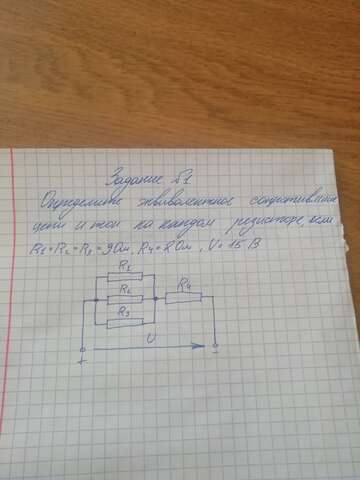 Задание №1
Определите эквивалентное сопротивление
цепи и токи на каждом резисторе, если
R1=R2=R3=9Ом, R4=2Ом, U=15 В
R1
R2
R4
R3
U
+ -